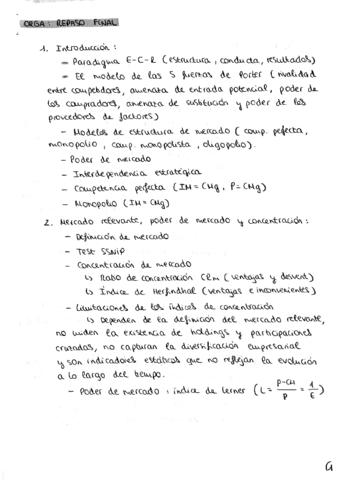 ORGA: REPASO FINAL
1. Introducción:
- Paradigma E-C-R (estructura, conducta, resultados)
- El modelo de las 5 fuerzas de Porter (rivalidad
entre competidores, amenaza de entrada potencial, poder de
los compradores, amenaza de sustitución y poder de los
proveedores de factores)
- Modelos de estructura de mercado (comp. perfecta,
monopolio, comp. monopolista, oligopolio).
- Poder de mercado
- Interdependencia estratégica
- Competencia perfecta (IM = CMg, P = CMg)
- Monopolio (IM = CMg)
2. Mercado relevante, poder de mercado y concentración:
- Definición de mercado
- Test SSNIP
- Concentración de mercado
↳ Ratio de concentración CRm (ventajas y desvent)
↳ Índice de Herfindhal (ventajas e inconvenientes)
- Limitaciones de los índices de concentración
↳ Dependen de la definición del mercado relevante,
no miden la existencia de holdings y participaciones
cruzadas, no capturan la diversificación empresarial
y son indicadores estáticos que no reflejan la evolución
a lo largo del tiempo.
- Poder de mercado: índice de Lerner (L = P-CM/P = 1/E)